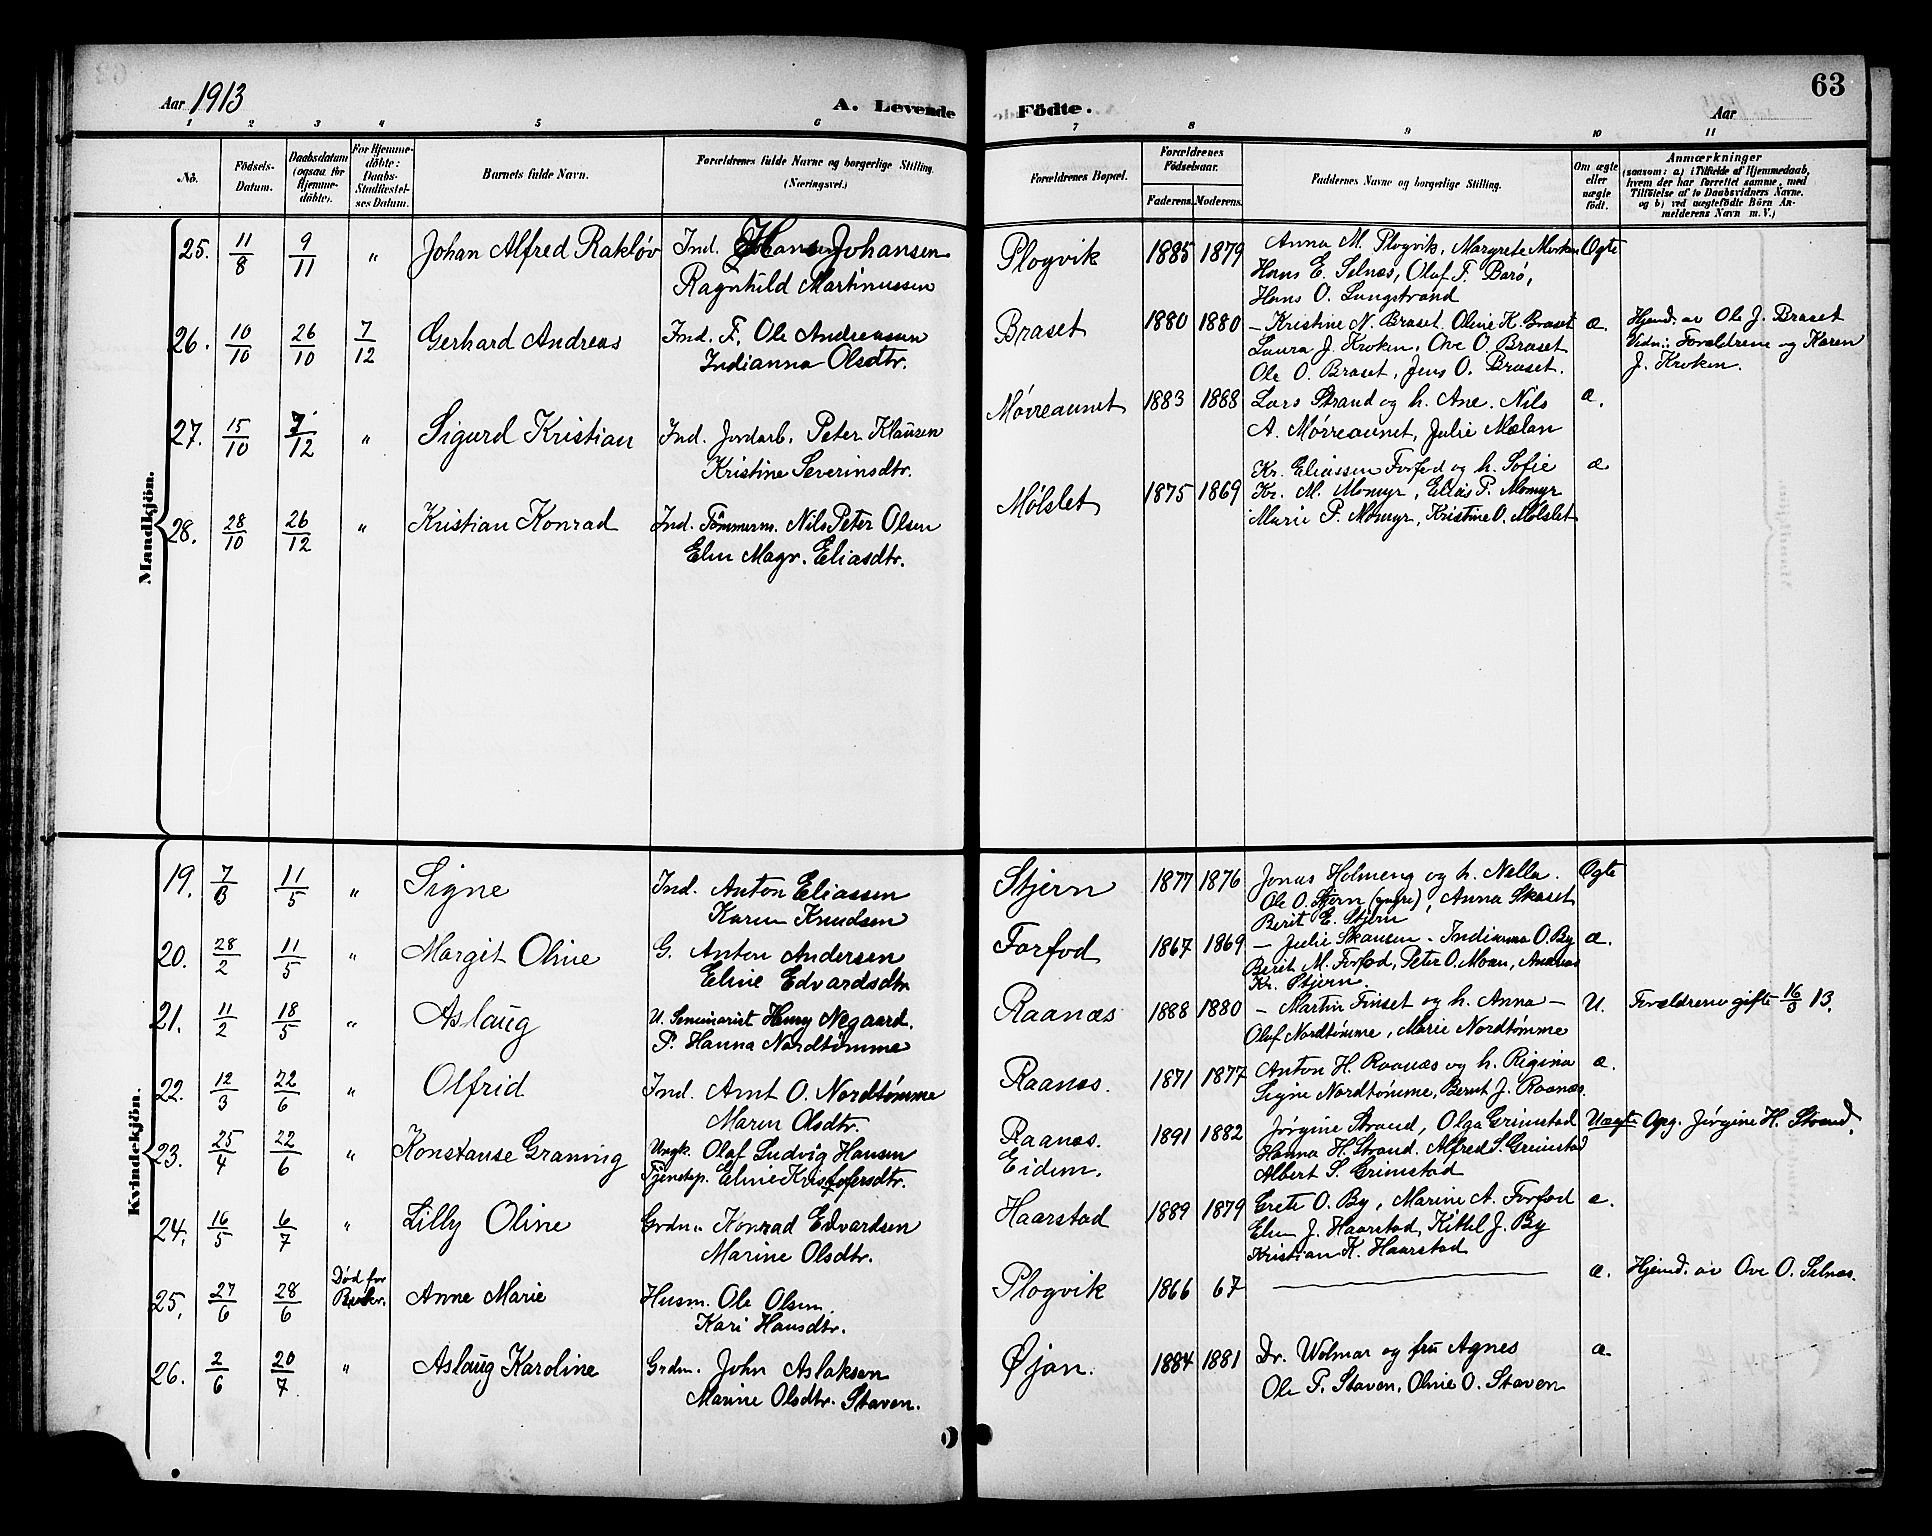 63
Aar 1913
A. Levende
Födte.
Aar
1 2 3 4 5 6
7 8 9 10 11
No.
Födsels-
Datum.
Daabsdatum
(ogsaa for
Hjemme-
döbte).
For Hjemme-
döbte:
Daabs-
Stadfæstel-
ses Datum.
Barnets fulde Navn.
Forældrenes fulde Navne og borgerlige Stilling.
(Næringsvei.)
Forældrenes Bopæl.
Forældrenes
Födselsaar.
Faderens. Moderens.
Faddernes Navne og borgerlige Stilling.
Om ægte
eller
uægte
født.
Anmærkninger
(saasom: a) i Tilfælde af Hjemmedaab,
hvem der har forrettet samme, med
Tilføielse af to Daabsvidners Navne.
og b) ved uægtefödte Börn An-
melderens Navn m. V.)
Mandkjön.
25. 11/8 9/11 " Johan Alfred Rakløv Ind. Johansen
Ragnhild Martinussen
Plogvik 1885 1879 Anna M. Plogvik, Margrete Morken Ogte
Hans E. Selnes, Olaf F. Barø,
Hans O. Langstrand
26. 10/10 26/10 7/12 Gerhard Andreas Ind. F. Ole Andreassen
Indianna Olsdtr.
Braset 1880 1880 – Kristine N. Braset. Oline K. Braset æ. Hjemd. av Ole J. Braset
Laura J. Kroken, Ove O. Braset Vidn.: Forældrene og Karen
Ole O. Braset, Jens O. Braset. J. Kroken.
27. 15/10 7/12 " Sigurd Kristian Ind. Jordarb. Peter Klausen
Kristine Severinsdtr.
Mørreaunet 1883 1888 Lars Strand og h. Ane. Nils æ.
A. Mørreaunet, Julie Mælan
28. 28/10 26/12 " Kristian Konrad Ind. Tømmerm. Nils Peter Olsen
Elen Magr. Eliasdtr.
Mølslet 1875 1869 Kr. Eliassen Forfod og h. Sofie æ
Kr. M. Momyr, Elias P. Momyr
Marie P. Momyr, Kristine O. Mølslet
Kvindekjön.
19. 7/3 11/5 " Signe Ind. Anton Eliassen
Karen Knudsen
Stjern 1877 1876 Jonas Holmeng og h. Nella. Ogte
Ole O. Stjern (yngre), Anna Skaset
Berit E. Stjern
20. 28/2 11/5 " Margit Oline G. Anton Andersen
Eline Edvardsdtr
Forfod 1867 1869 – Julie Skansen – Indianna O. By æ.
Berit M. Forfod, Peter O. Moan, Andreas
Kr. Stjern.
21. 11/2 18/5 " Aslaug U. Seminarist Henry Negaard.
P. Hanna Nordtømme
Raanæs 1888 1880 – Martin Finset og h. Anna – U. Forældrene gifte 16/3 13.
Olaf Nordtømme, Marie Nordtømme
22. 12/3 22/6 " Olfrid Ind. Arnt O. Nordtømme
Maren Olsdtr.
Raanæs. 1871 1877 Anton H. Raanæs og h. Rigina æ.
Signe Nordtømme, Bernt J. Raanæs.
23. 25/4 22/6 " Konstanse Granning Ungk. Olaf Ludvig Hansen
Tjenstep. Eline Kristofersdtr.
Raanæs. 1891 1882 Jørgine Strand, Olga Grimstad Uægte Opg. Jørgine H. Strand.
Eidem. Hanna H. Strand. Alfred S. Grimstad
Albert S. Grimstad
24. 16/5 6/7 " Lilly Oline Grdn. Konrad Edvardsen
Marine Olsdtr.
Haarstad 1889 1879 Grete O. By, Marine A. Forfod æ.
Elen J. Haarstad, Kittel J. By
Kristian K. Haarstad
25. 27/6 28/6 Død for Anne Marie Husm. Ole Olsen
Kari Hansdtr.
Plogvik 1866 67 æ. Hjemd. av Ove O. Selnæs.
26. 2/6 20/7 " Aslaug Karoline Grdm. John Aslaksen
Marine Olsdtr. Staven.
Øjan. 1884 1881 Dr. Wolmar og fru Agnes æ
Ole P. Staven, Oline O. Staven